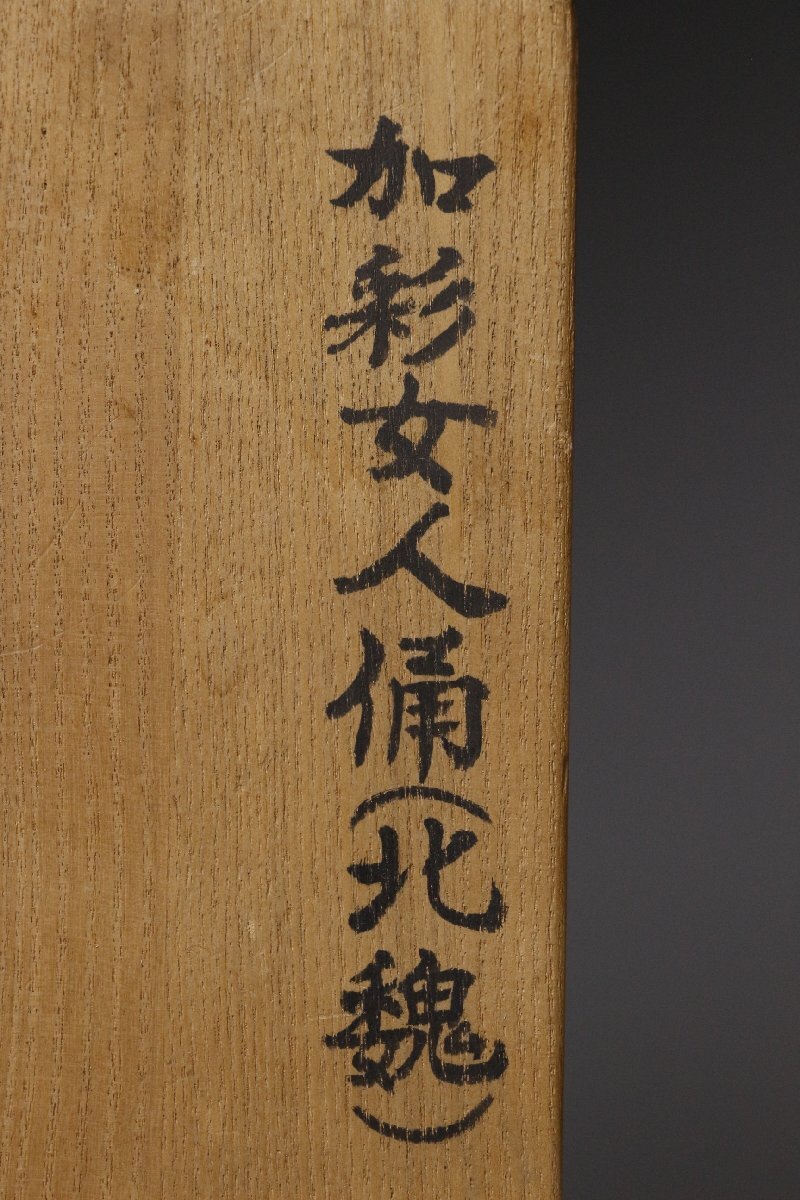 加彩女人俑(北魏)